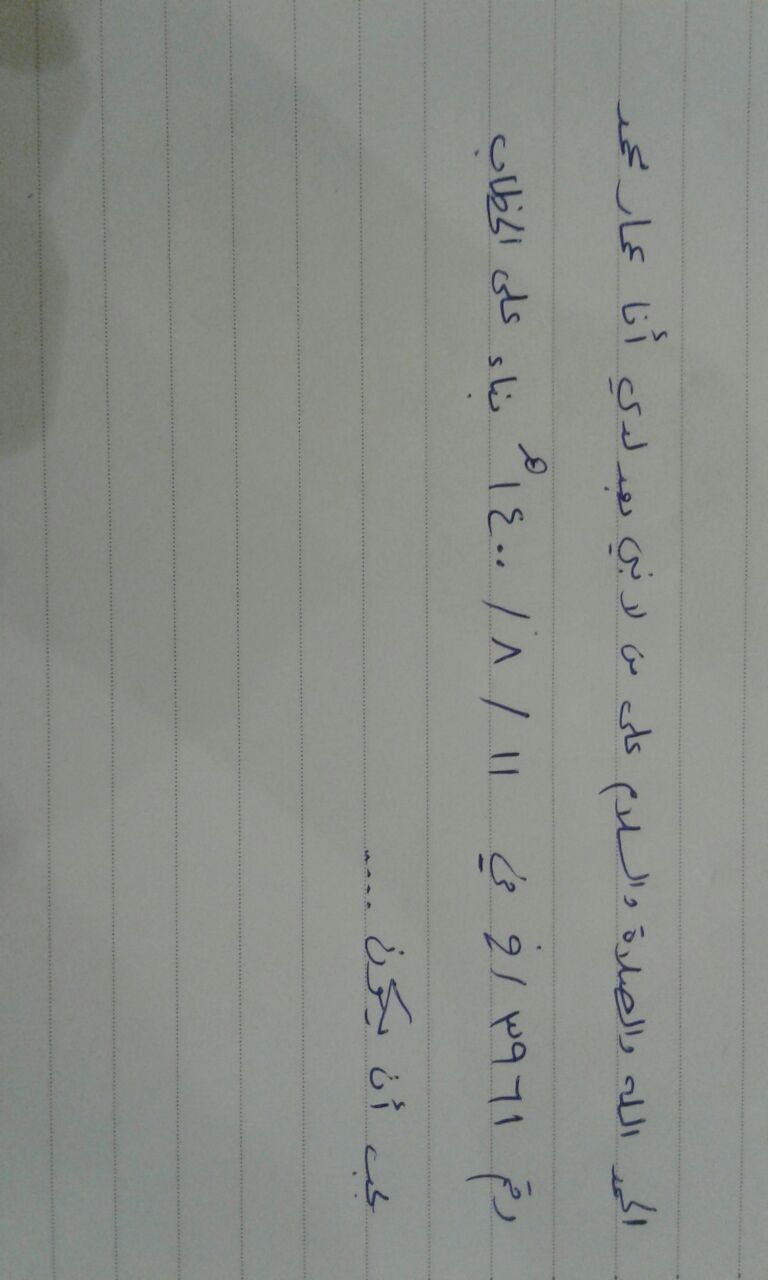 الحمد الله والصلاة والسلام على من لا نبي بعد لدي أنا عمار محمد
رقم ٣٩٦١ / في ١١ / ٨ / ١٤٠٠هـ بناء على الخطاب
يجب أن يكون ....